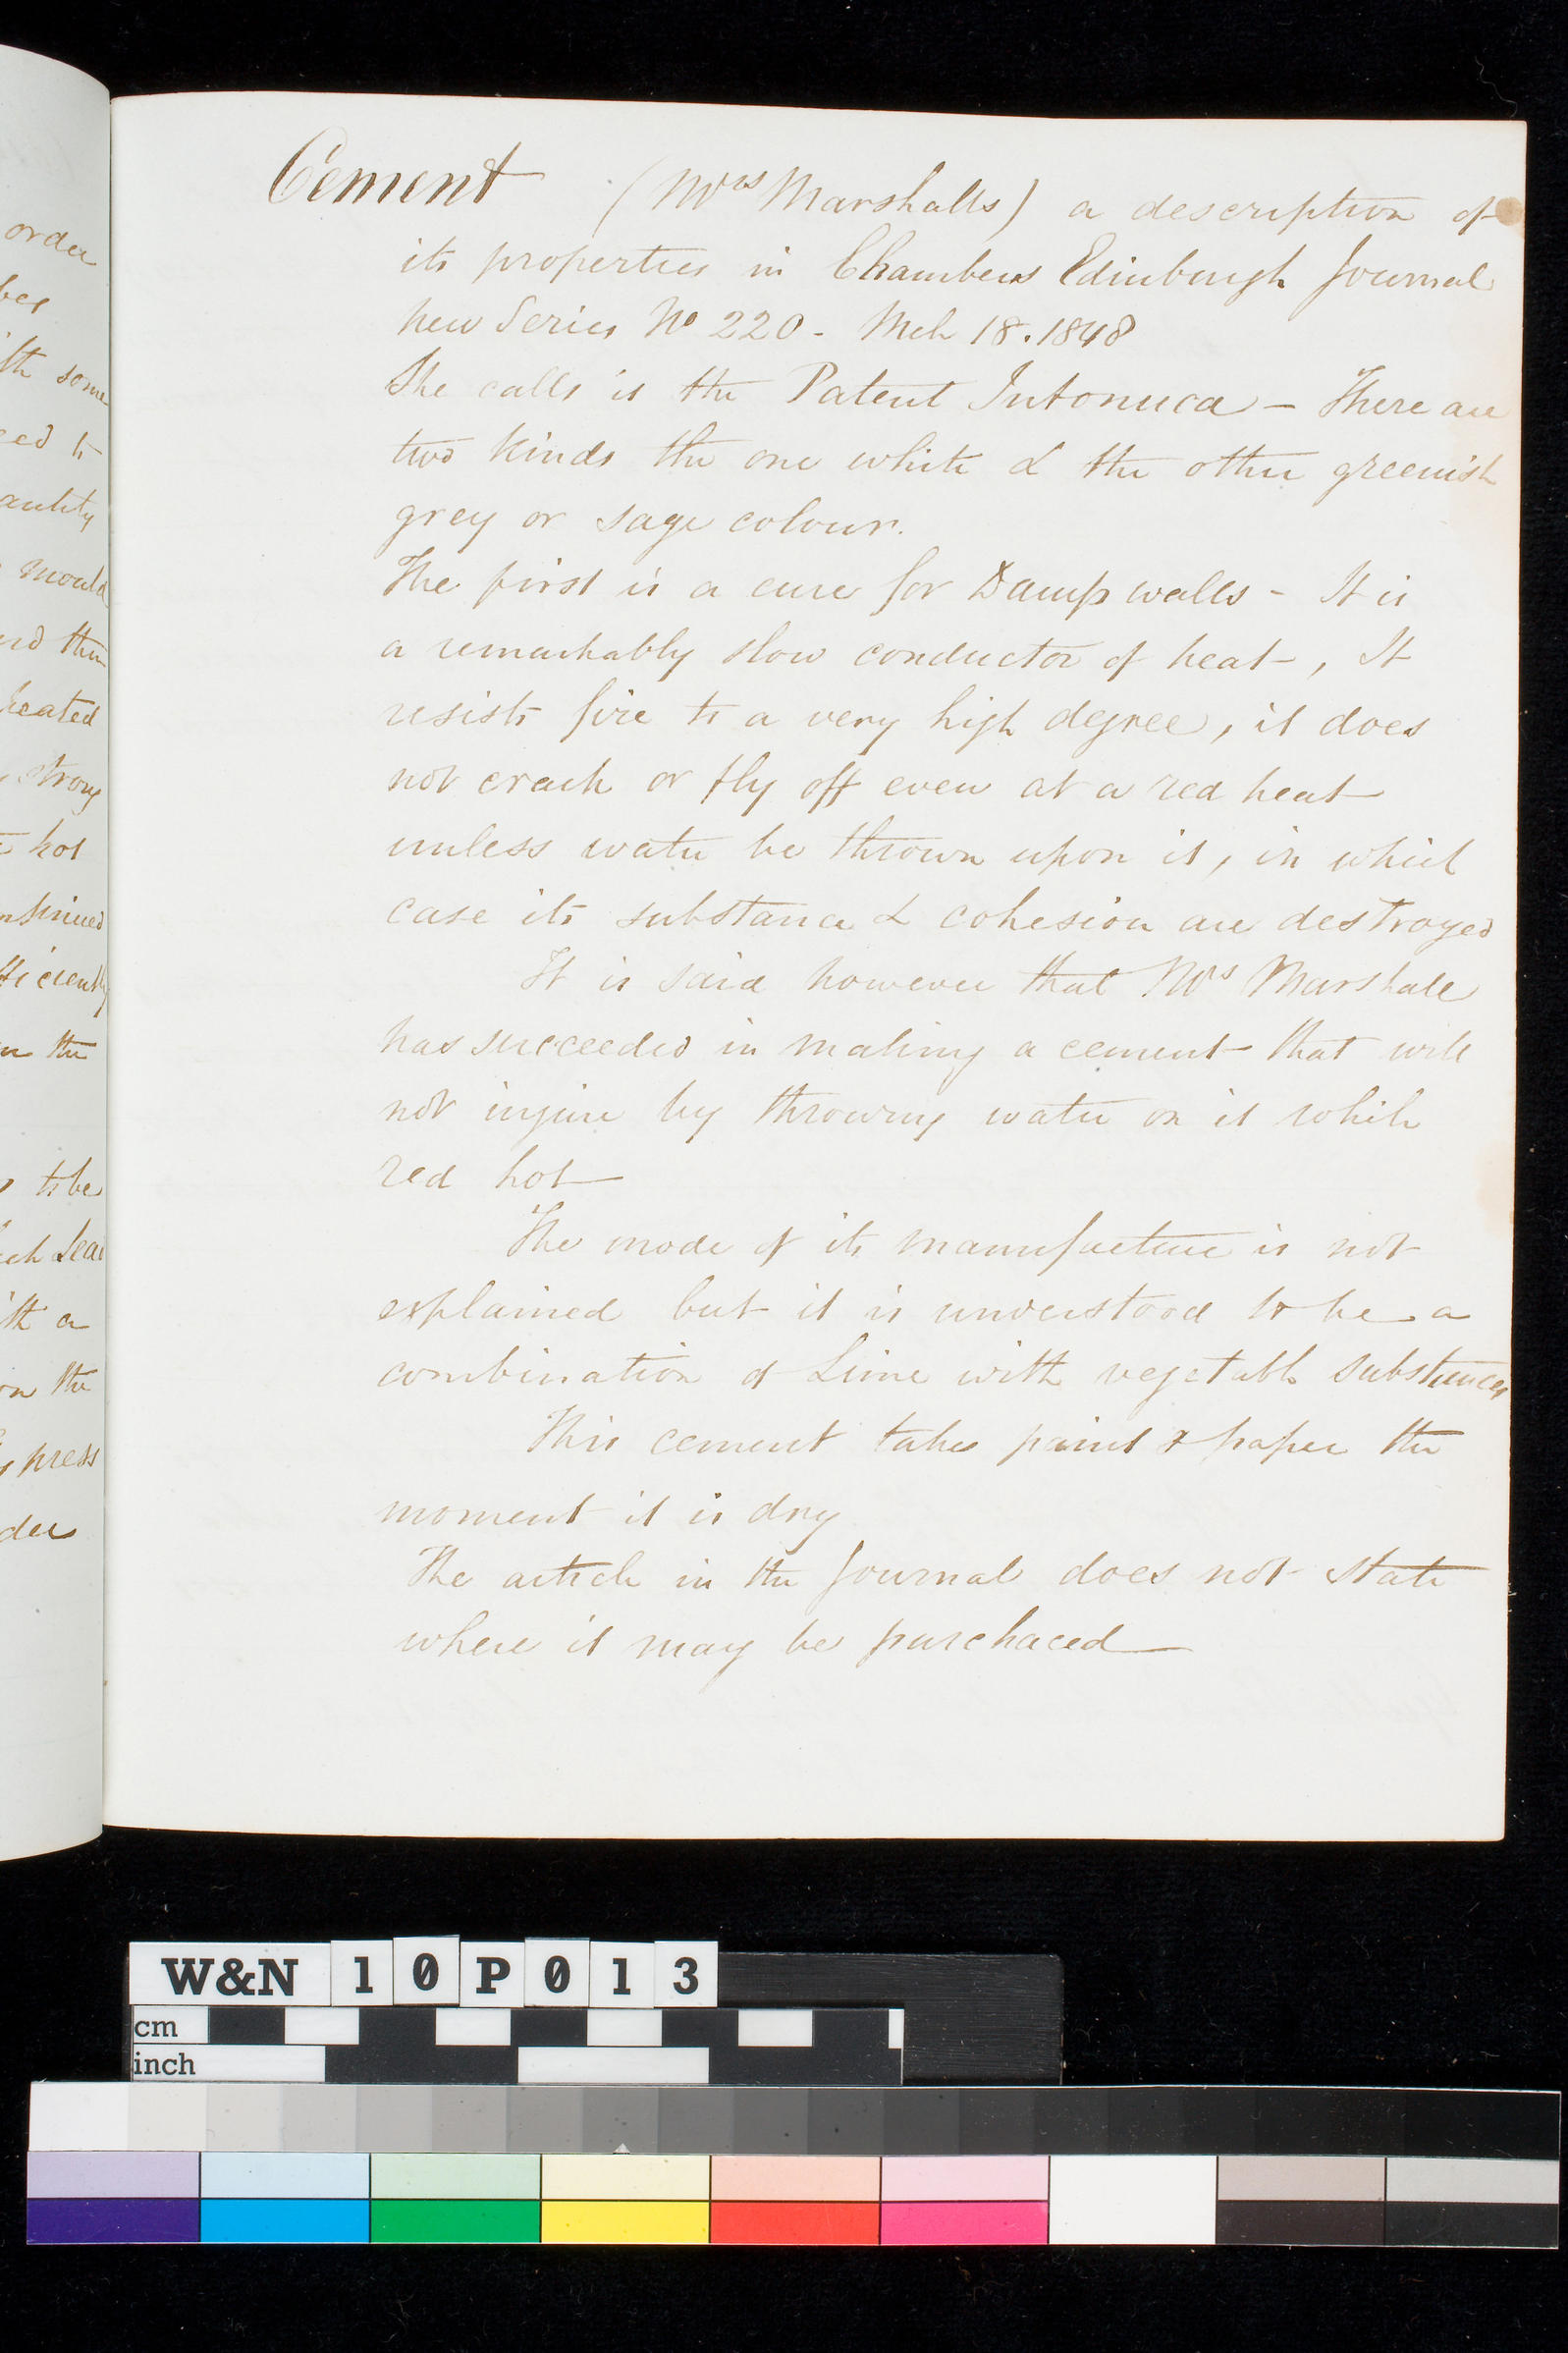 order
ber
ith some
eed to
antity
mould
nd then
heated
, strong
hot
ntinued
fficiently
n the
to be
ith a
on the
press
der
Cement (Mrs Marshalls) a description of
its properties in Chambers Edinburgh Journal
new Series No 220 - Mch 18. 1848
She calls it the Patent Intonuca - There are
two kinds the one white & the other greenish
grey or sage colour.
The first is a cure for Damp walls - It is
a remarkably slow conductor of heat, It
resists fire to a very high degree, it does
not crack or fly off even at a red heat
unless water be thrown upon it, in which
case its substance & cohesion are destroyed
It is said however that Mrs Marshall
has succeeded in making a cement that will
not injure by throwing water on it while
red hot
The mode of its manufacture is not
explained but it is understood to be a
combination of Lime with vegetable substances
This cement takes paint & paper the
moment it is dry
The article in the Journal does not state
where it may be purchaced
W&N 10P013
cm
inch